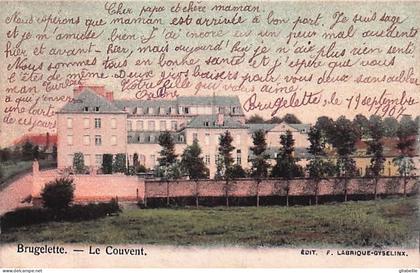 Cher papa et chère maman.
Nous espérons que maman est arrivée à bon port. Je suis sage
et je m'amuse bien. J'ai encore eu un peu mal aux dents
hier et avant-hier, mais aujourd'hui je n'ai plus rien senti
Nous sommes tous en bonne santé et j'espère que vous
l'êtes de même. Deux gros baisers pour vous deux
Votre qui vous aime
Brugelette, le 19 septembre
1907
Brugelette. — Le Couvent.
ÉDIT. F. LABRIQUE-GYSELINX.